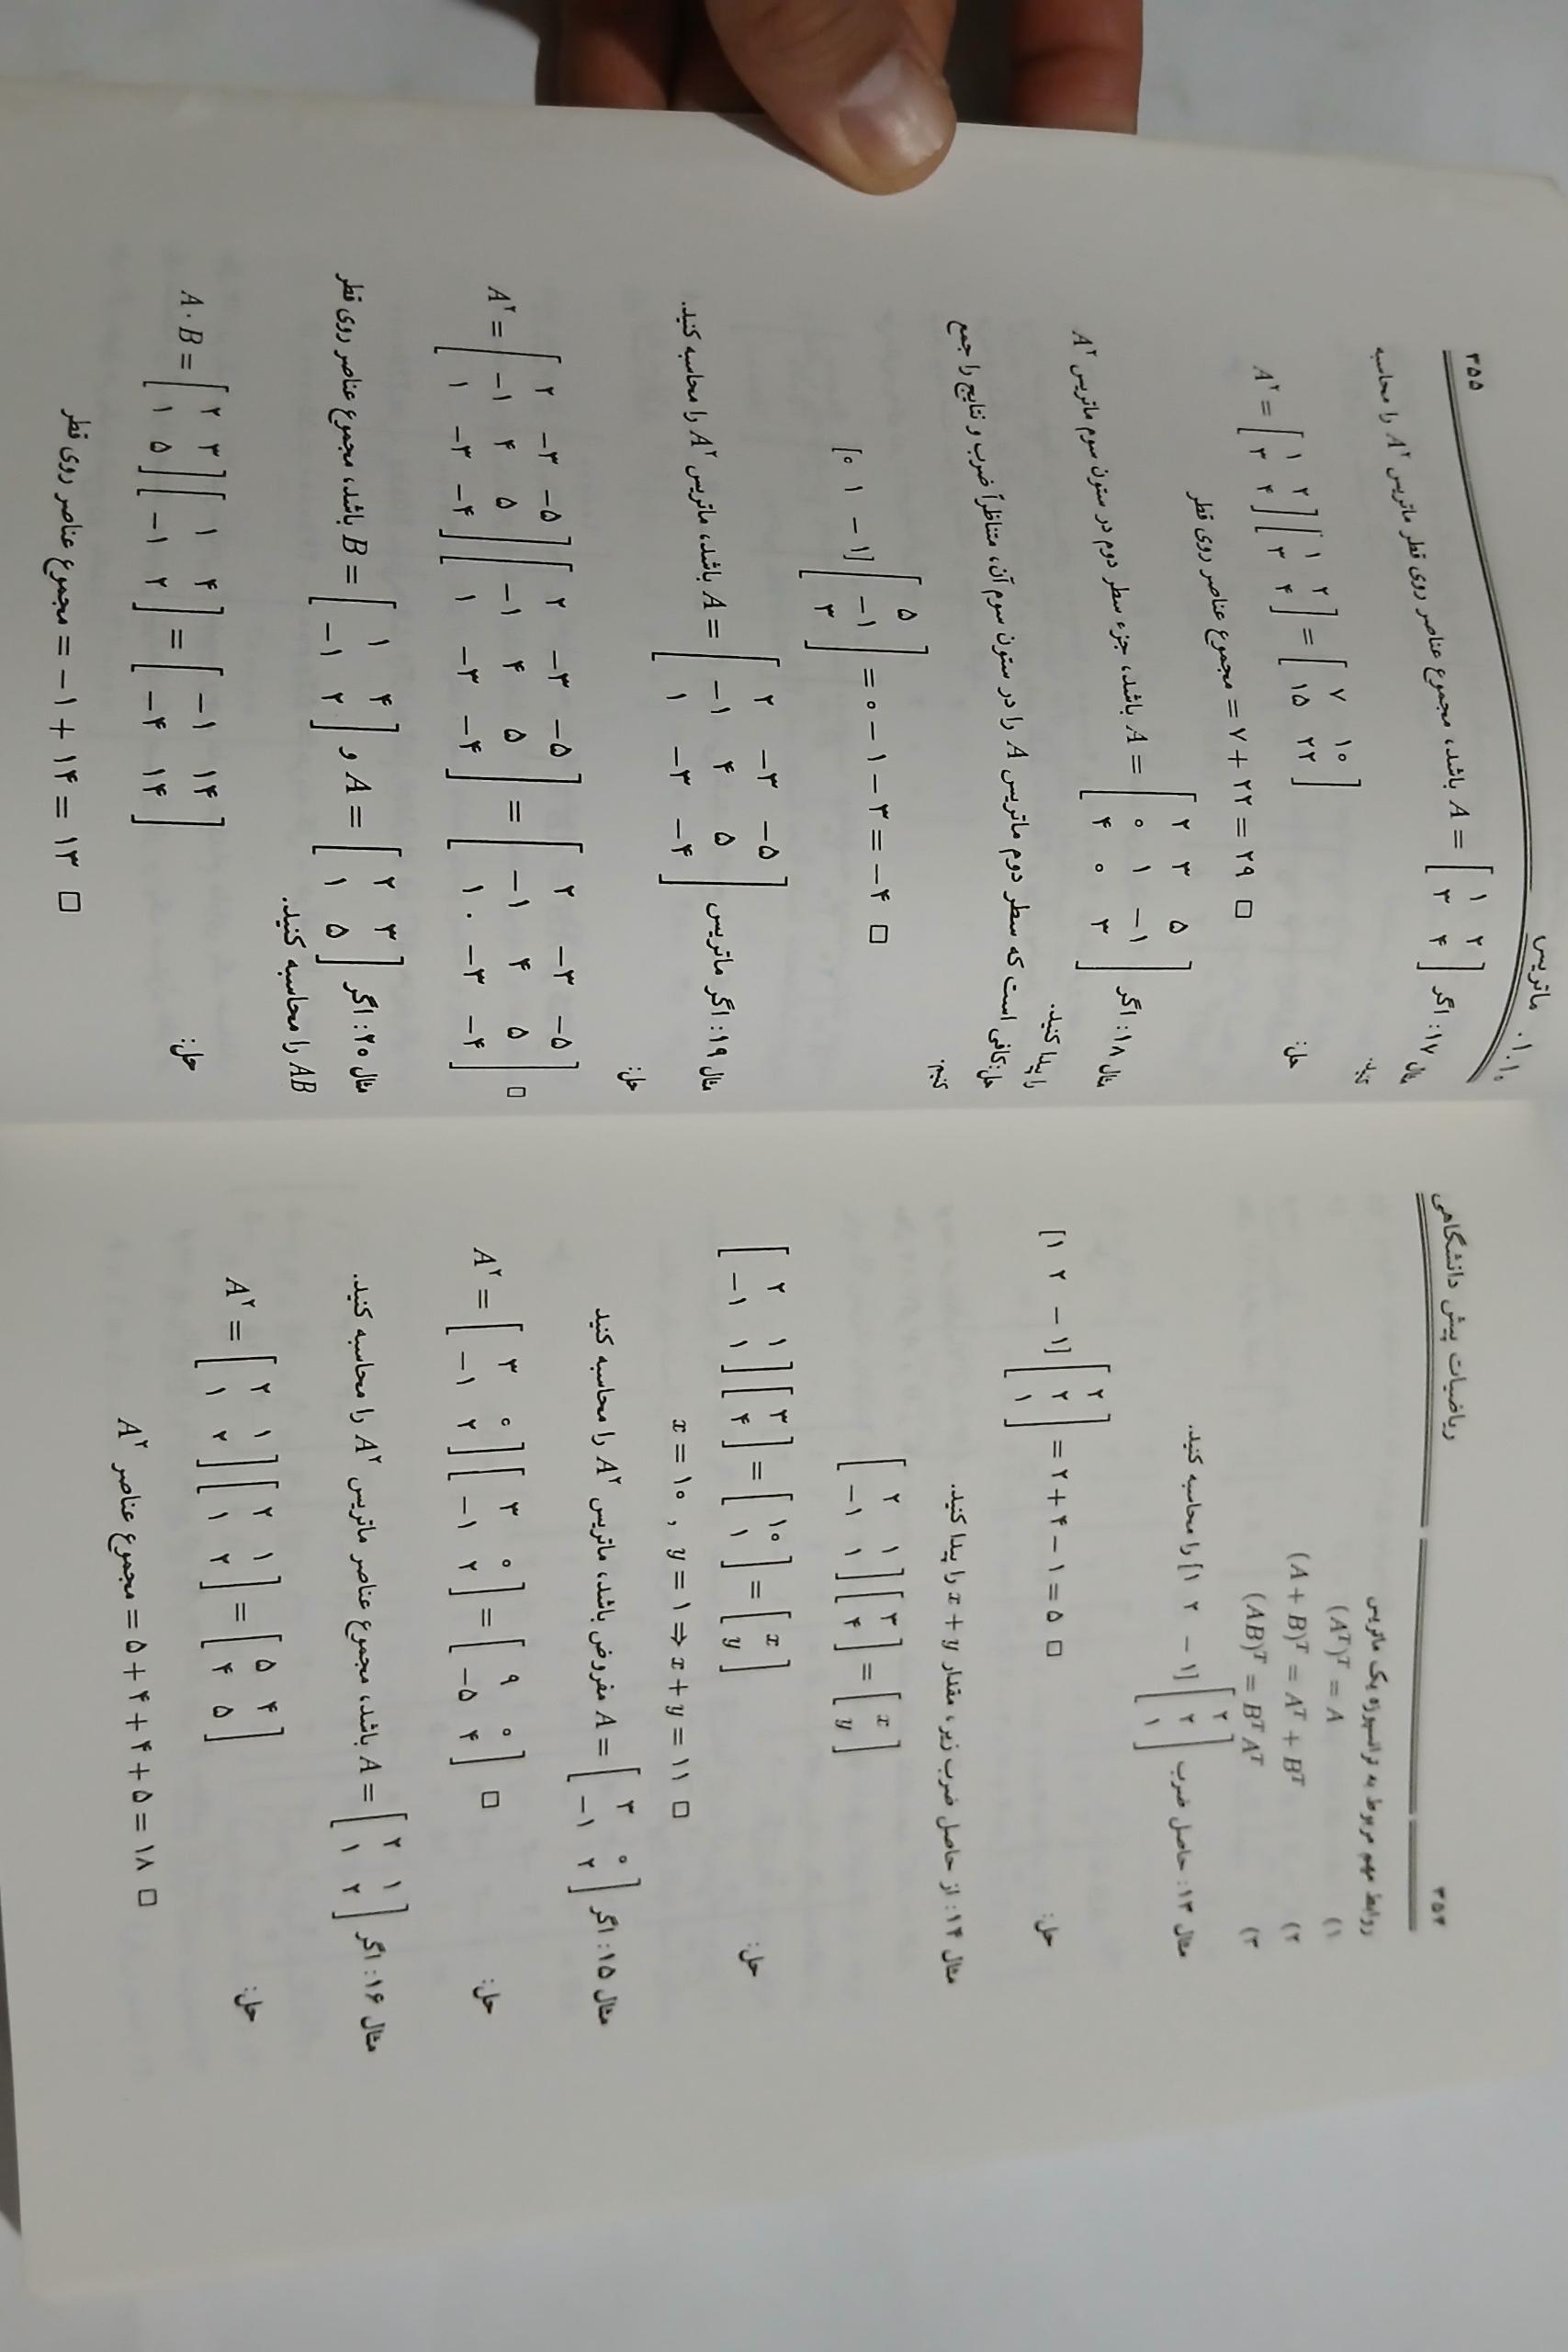 ریاضیات پیش دانشگاهی ۳۵۴
روابط مهم مربوط به ترانسپوزه یک ماتریس
۱) (Aᵀ)ᵀ = A
۲) (A + B)ᵀ = Aᵀ + Bᵀ
۳) (AB)ᵀ = BᵀAᵀ
مثال ۱۳: حاصل ضرب [۱ ۲ −۱] [۲; ۲; ۱] را محاسبه کنید.
حل:
[۱ ۲ −۱] [۲; ۲; ۱] = ۲ + ۴ − ۱ = ۵ □
مثال ۱۴: از حاصل ضرب زیر، مقدار x + y را پیدا کنید.
[۲ ۱; −۱ ۱] [۳; ۴] = [x; y]
حل:
[۲ ۱; −۱ ۱] [۳; ۴] = [۱۰; ۱] = [x; y]
x = ۱۰ , y = ۱ ⇒ x + y = ۱۱ □
مثال ۱۵: اگر A = [۳ ۰; −۱ ۲] مفروض باشد، ماتریس A² را محاسبه کنید
حل:
A² = [۳ ۰; −۱ ۲] [۳ ۰; −۱ ۲] = [۹ ۰; −۵ ۴] □
مثال ۱۶: اگر A = [۲ ۱; ۱ ۲] باشد، مجموع عناصر ماتریس A² را محاسبه کنید.
حل:
A² = [۲ ۱; ۱ ۲] [۲ ۱; ۱ ۲] = [۵ ۴; ۴ ۵]
مجموع عناصر A² = ۵ + ۴ + ۴ + ۵ = ۱۸ □
۱۰.۱. ماتریس ۳۵۵
مثال ۱۷: اگر A = [۱ ۲; ۳ ۴] باشد، مجموع عناصر روی قطر ماتریس A² را محاسبه
کنید.
حل:
A² = [۱ ۲; ۳ ۴] [۱ ۲; ۳ ۴] = [۷ ۱۰; ۱۵ ۲۲]
مجموع عناصر روی قطر = ۷ + ۲۲ = ۲۹ □
مثال ۱۸: اگر A = [۲ ۳ ۵; ۰ ۱ −۱; ۴ ۰ ۳] باشد، جزء سطر دوم در ستون سوم ماتریس A²
را پیدا کنید.
حل: کافی است که سطر دوم ماتریس A را در ستون سوم آن، متناظراً ضرب و نتایج را جمع
کنیم.
[۰ ۱ −۱] [۵; −۱; ۳] = ۰ − ۱ − ۳ = −۴ □
مثال ۱۹: اگر ماتریس A = [۲ −۳ −۵; −۱ ۴ ۵; ۱ −۳ −۴] باشد، ماتریس A² را محاسبه کنید.
حل:
A² = [۲ −۳ −۵; −۱ ۴ ۵; ۱ −۳ −۴] [۲ −۳ −۵; −۱ ۴ ۵; ۱ −۳ −۴] = [۲ −۳ −۵; −۱ ۴ ۵; ۱ −۳ −۴] □
مثال ۲۰: اگر A = [۲ ۳; ۱ ۵] و B = [۱ ۴; −۱ ۲] باشد، مجموع عناصر روی قطر
AB را محاسبه کنید.
حل:
A · B = [۲ ۳; ۱ ۵] [۱ ۴; −۱ ۲] = [−۱ ۱۴; −۴ ۱۴]
مجموع عناصر روی قطر = −۱ + ۱۴ = ۱۳ □